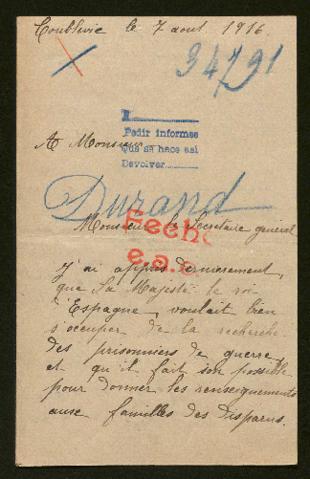 Coublevie le 7 aout 1916.
34791
Pedir informes
que se hace así
Devolver
A Monsieur
Durand
Monsieur le Secretaire général
Fecho
J'ai appris dernierement,
que Sa Majesté le roi
d'Espagne, voulait bien
s'occuper de la recherche
des prisonniers de guerre,
et qu'il fait son possible
pour donner les renseignements
aux familles des disparus.